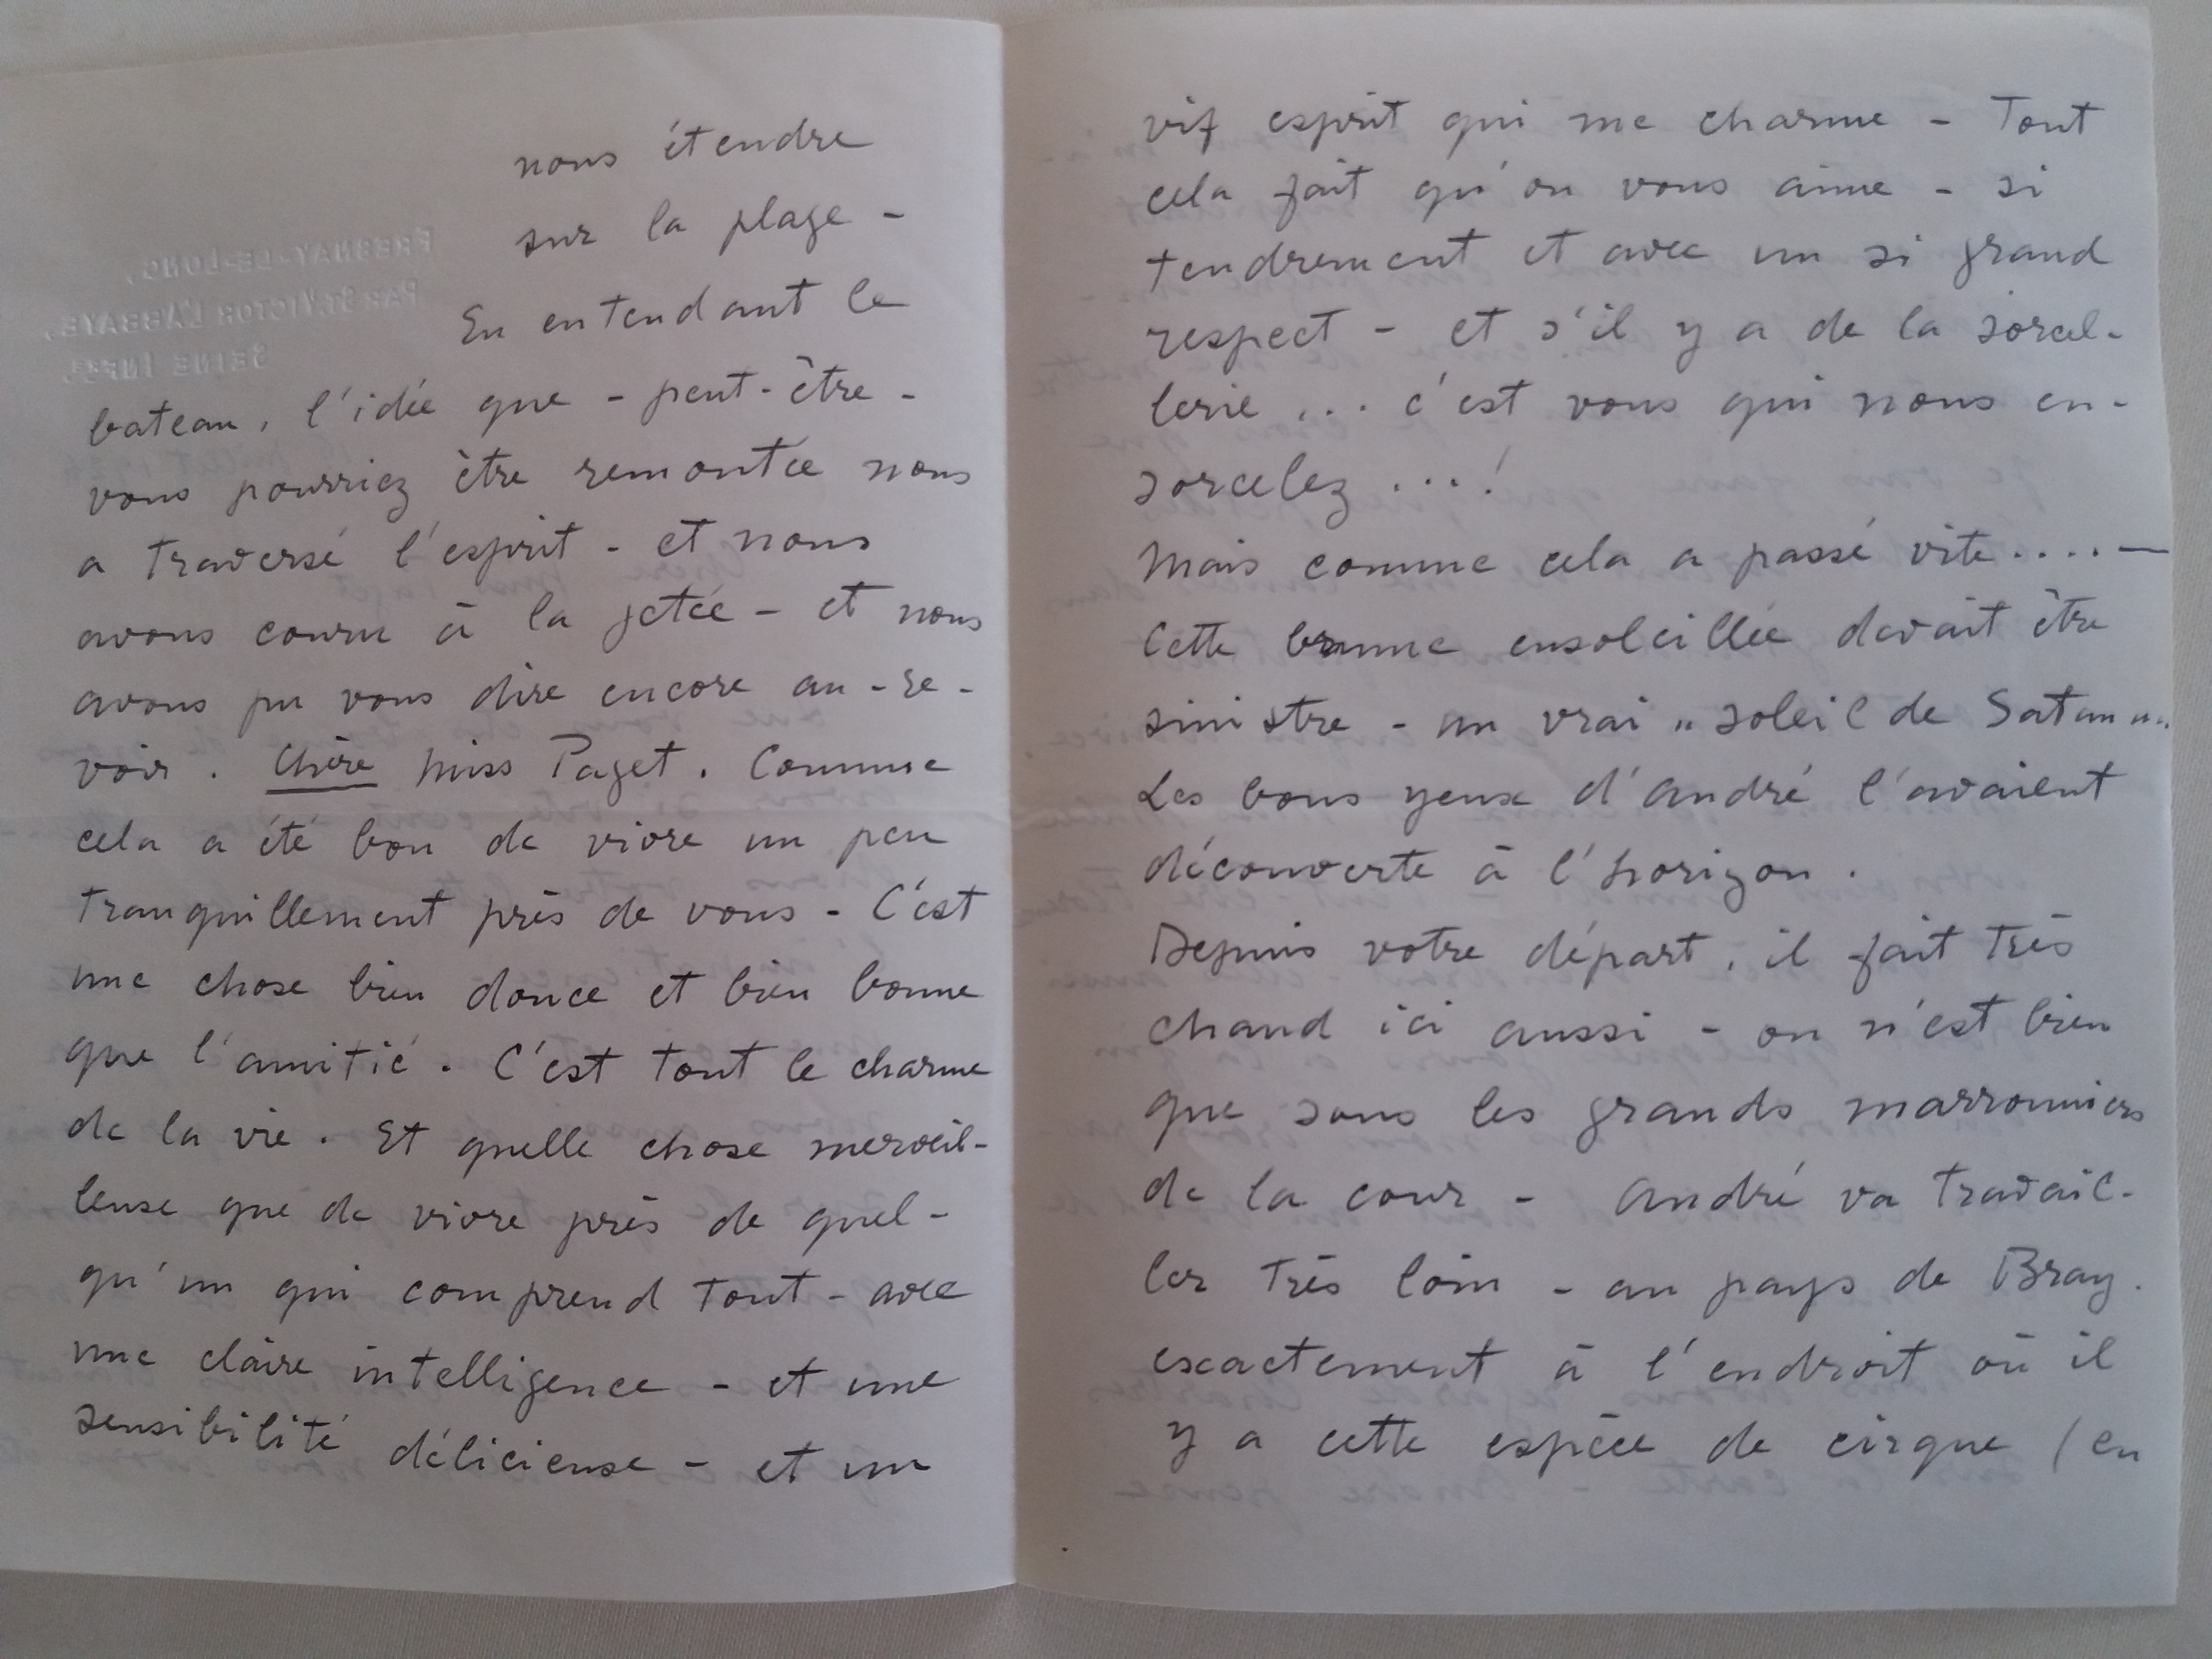 nous étendre
sur la plage -
FRESNAY-LE-LONG,
PAR ST VICTOR L'ABBAYE,
SEINE INFRE.
En entendant le
bateau, l'idée que - peut-être -
vous pourriez être remontée nous
a traversé l'esprit - et nous
avons couru à la jetée - et nous
avons pu vous dire encore au-re-
voir. Chère Miss Paget. Comme
cela a été bon de vivre un peu
tranquillement près de vous - C'est
une chose bien douce et bien bonne
que l'amitié. C'est tout le charme
de la vie. Et quelle chose merveil-
leuse que de vivre près de quel-
qu'un qui comprend tout - avec
une claire intelligence - et une
sensibilité délicieuse - et un
vif esprit qui me charme - Tout
cela fait qu'on vous aime - si
tendrement et avec un si grand
respect - et s'il y a de la sorcel-
lerie ... c'est vous qui nous en-
sorcelez ...!
Mais comme cela a passé vite.... —
Cette brume ensoleillée devait être
sinistre - un vrai „ soleil de Satan "..
Les bons yeux d'André l'avaient
découverte à l'horizon.
Depuis votre départ, il fait très
chaud ici aussi - on n'est bien
que sous les grands marronniers
de la cour - André va travail-
ler très loin - au pays de Bray.
exactement à l'endroit où il
y a cette espèce de cirque (en